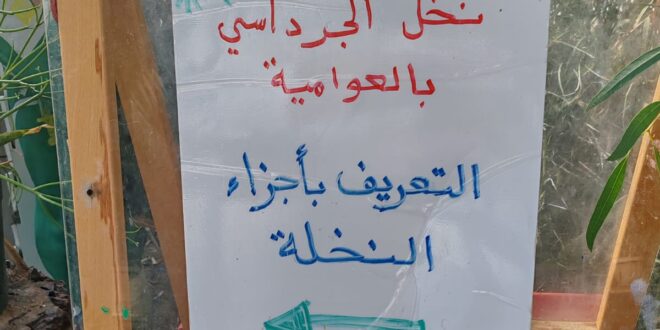 نخل الجرداسي
بالعوامية
التعريف بأجزاء
النخلة